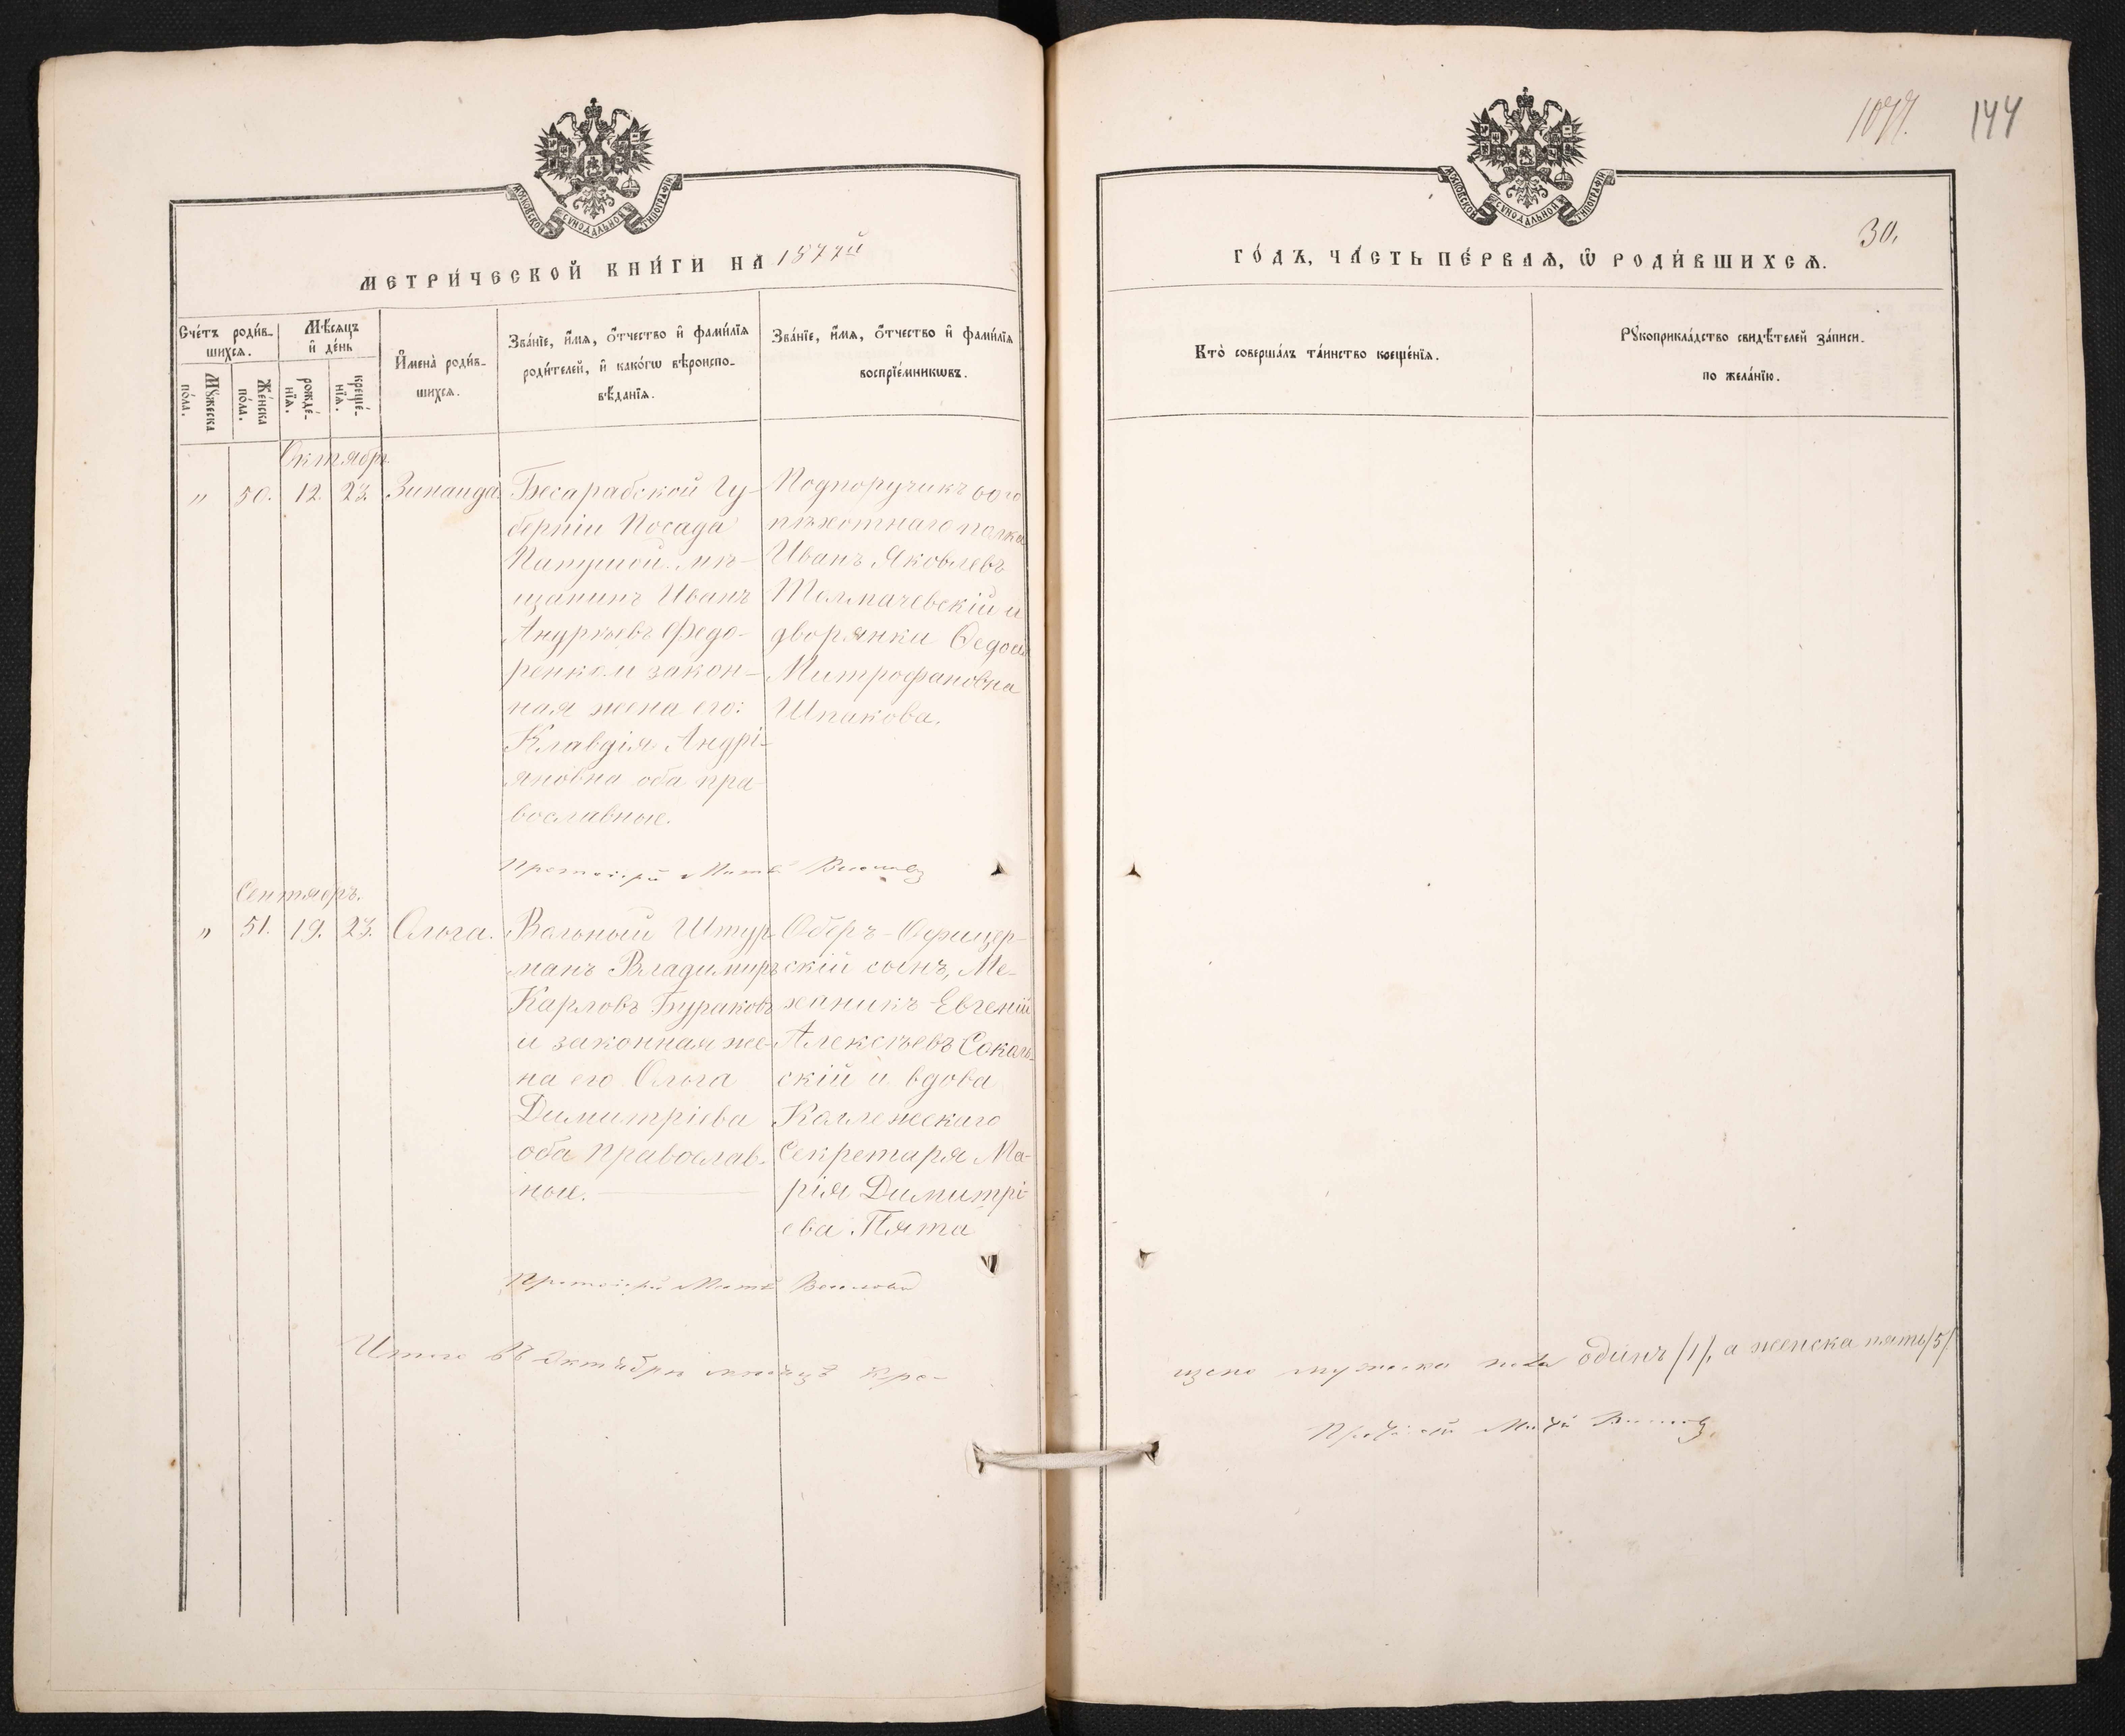 МОСКОВСКОЙ СѴНОДАЛЬНОЙ ТИПОГРАФІИ
МЕТРИ́ЧЕСКОЙ КНИ́ГИ НА 1877й
Сче́тъ роди́в-
шихсѧ.
Мѣ́сѧцъ
и҆ де́нь
Мꙋ́жеска
по́ла.
Же́нска
по́ла.
рожде́-
нїѧ.
креще́-
нїѧ.
И҆мена̀ роди́в-
шихсѧ.
Зва́нїе, и҆́мѧ, ѻ҆́тчество и҆ фами́лїѧ
роди́телей, и҆ како́гѡ вѣроиспо-
вѣ́данїѧ.
Зва́нїе, и҆́мѧ, ѻ҆́тчество и҆ фами́лїѧ
воспрїе́мникѡвъ.
Октябрь.
„ 50. 12. 23. Зинаида
Бесарабской Гу-
берніи Посада
мѣ-
щанинъ Иванъ
Андреевъ Федо-
ренко и закон-
ная жена его:
Клавдія Андрі-
яновна оба пра-
вославные.
Подпоручикъ 60го
пѣхотнаго полка
Иванъ Яковлевъ
Толмачевскій и
дворянки Ѳедосія
Митрофановна
Шпакова.
Протоіерей
Сентябрь.
„ 51. 19. 23. Ольга.
Вольный Штур-
манъ Владимиръ
Карловъ Бураковъ
и законная же-
на его Ольга
Димитріева
оба православ-
ные.
Оберъ-Офицер-
скій сынъ, Ме-
ханникъ Евгеній
Алексѣевъ Соколь-
скій и вдова
Коллежскаго
Секретаря Ма-
рія Димитрі-
ева Пята
Протоіерей
Итого въ Октябрѣ мѣсяцѣ кре-
1077. 144
МОСКОВСКОЙ СѴНОДАЛЬНОЙ ТИПОГРАФІИ
30.
ГО́ДЪ, ЧА́СТЬ ПЕ́РВАѦ, Ѡ҆ РОДИ́ВШИХСѦ.
Кто̀ соверша́лъ та́инство креще́нїѧ.
Рꙋкоприкла́дство свидѣ́телей за́писи
по жела́нїю.
щено мужеска пола одинъ /1/, а женска пять /5/.
Протоіерей